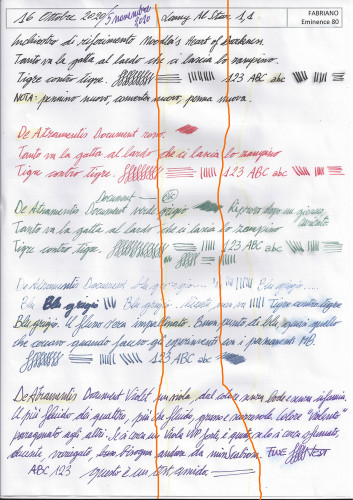 16 Ottobre 2020/5 novembre 2020 Lamy Al Star 1,1
FABRIANO
Eminence 80
Inchiostro di riferimento Noodler's Heart of Darkness.
Tanto va la gatta al lardo che ci lascia lo zampino.
Tigre contro tigre. 123 ABC abc
NOTA: pennino nuovo, converter nuovo, penna nuova.
De Atramentis Document rosso.
Tanto va la gatta al lardo che ci lascia lo zampino
Tigre contro tigre. 123 ABC abc
Document
De Atramentis Document verde grigio Riprova dopo un giorno
Tanto va la gatta al lardo che ci lascia lo zampino
Tigre contro tigre 123 ABC abc
De Atramentis Document Blu grigio
Blu Blu grigio Blu grigio. Tigre contro tigre
Blu grigio. Il flusso s'era impallonato. Buon punto di blu, quasi quello
che cercavo quando facevo gli esperimenti con i permanenti MB.
123 ABC abc
De Atramentis Document Violet, un viola, del colore senza lode e senza infamia.
Il più fluido dei quattro, più che fluido, colore "Violento"
paragonato agli altri. Se si cerca un Viola
decente, variegato, bisogna andare da FINE TEST
ABC 123 questo è un test